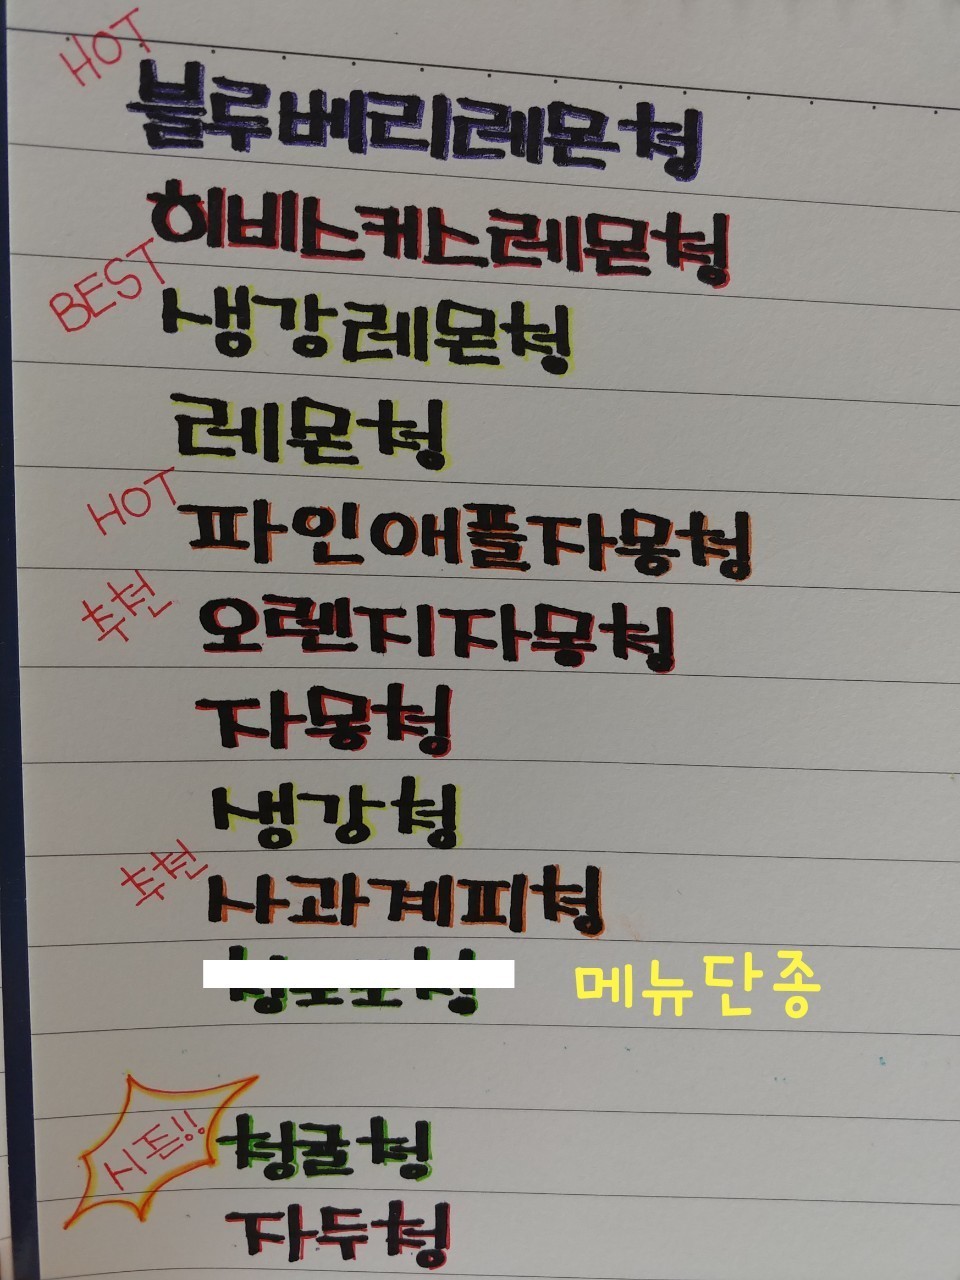 HOT
블루베리레몬청
히비스커스레몬청
BEST
생강레몬청
레몬청
HOT
파인애플자몽청
추천
오렌지자몽청
자몽청
생강청
추천
사과계피청
메뉴단종
시즌!!
청귤청
자두청